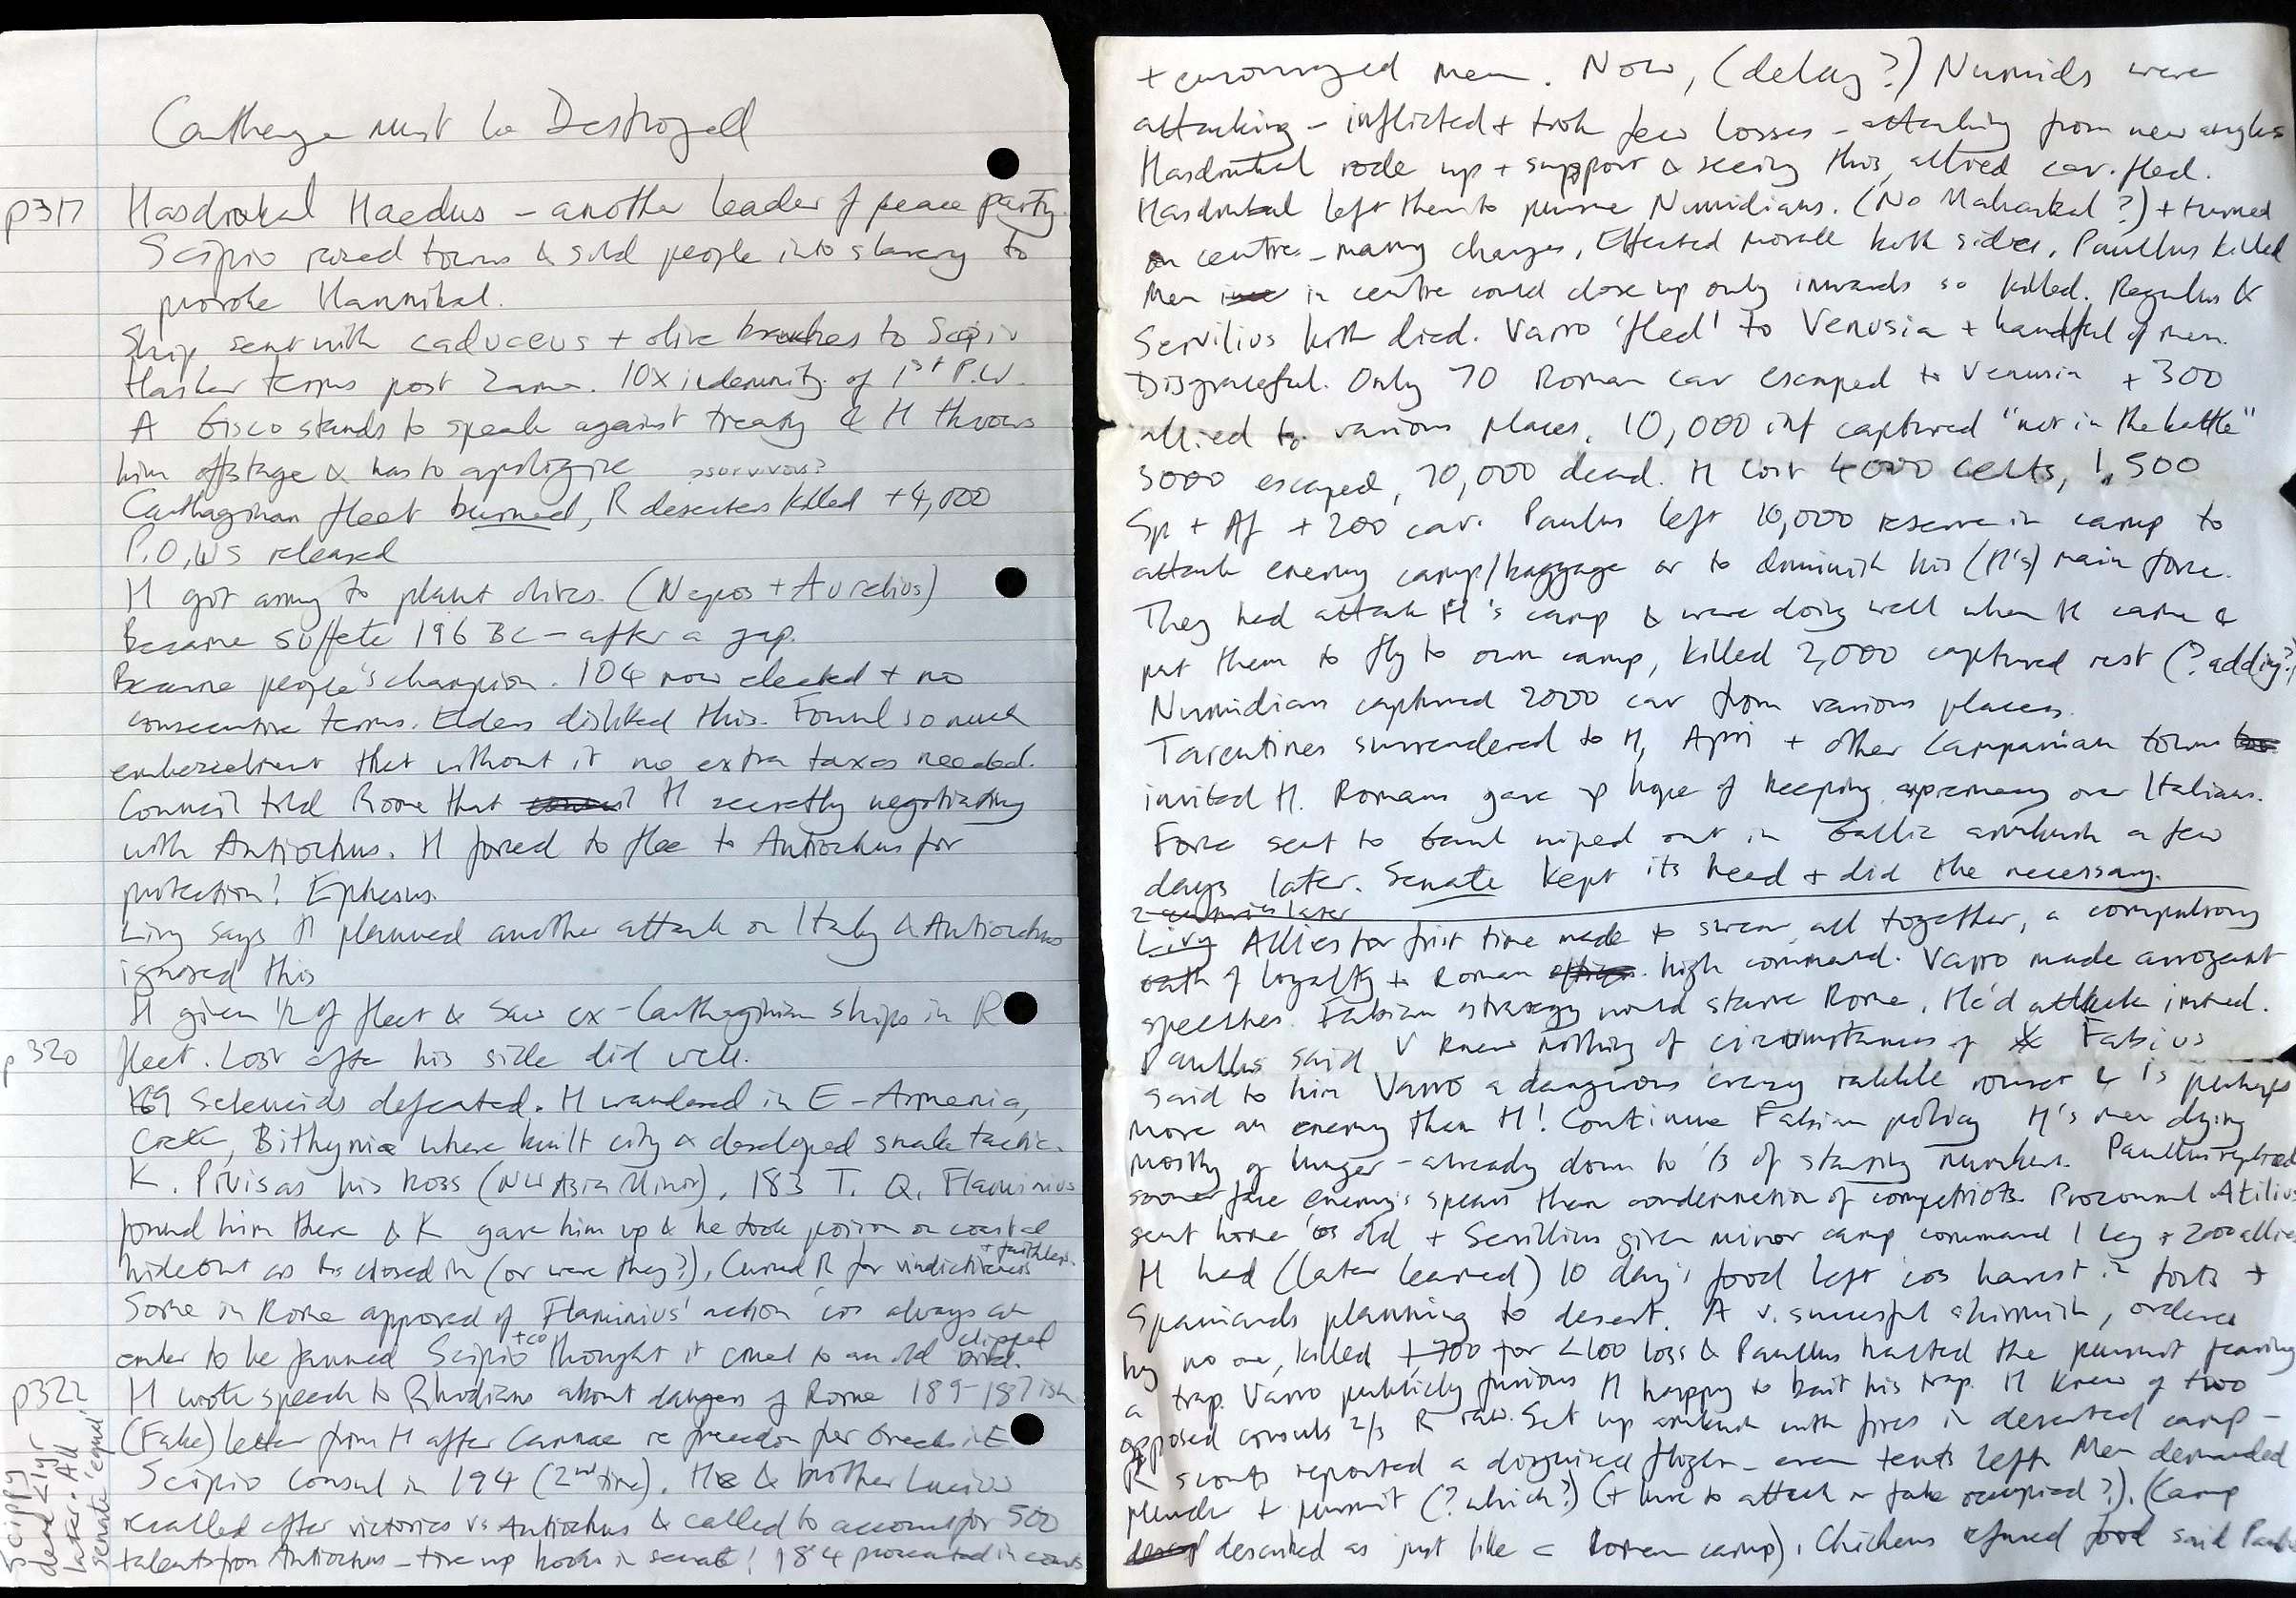 Carthage must be Destroyed
p317 Hasdrubal Haedus - another leader of peace party.
Scipio razed towns & sold people into slavery to
provoke Hannibal.
Ship sent with caduceus + olive branches to Scipio
Harsher terms post Zama. 10x indemnity of 1st P.W.
A Gisco stands to speak against treaty & H throws
him offstage & has to apologize >survivors?
Carthaginian fleet burned, R deserters killed + 4,000
P.O.WS released
H got army to plant olives. (Nepos + Aurelius)
Became suffete 196 BC - after a gap.
Became people's champion. 104 now elected + no
consecutive terms. Elders disliked this. Found so much
embezzlement that without it no extra taxes needed.
Council told Rome that H secretly negotiating
with Antiochus. H forced to flee to Antiochus for
protection! Ephesus.
Livy says H planned another attack on Italy & Antiochus
ignored this
H given 1/2 of fleet & saw ex-Carthaginian ships in R
p320 fleet. Lost after his side did well.
Seleucids defeated. H wandered in E - Armenia,
Crete, Bithynia where built city & developed snake tactic.
K. Prusias his boss (NW Asia Minor). 183 T. Q. Flaminius
found him there & K gave him up & he took poison in coastal
hideout as Rs closed in (or were they?). Cursed R for vindictiveness + faithless.
Some in Rome approved of Flaminius' action 'cos always an
ember to be fanned Scipio + co thought it cruel to an old clipped bird.
p322 H wrote speech to Rhodians about dangers of Rome 189-187ish
(Fake) letter from H after Cannae re freedom for Greeks in E
Scipio Consul in 194 (2nd time). He & brother Lucius
recalled after victories vs Antiochus & called to account for 500
talents from Antiochus - tore up books in senate! 184 prosecuted in courts
Scippy
dead <1yr
later. All
senate 'equal'
+ encouraged men. Now, (delay?) Numids were
attacking - inflicted + took few losses - attacking from new angles
Hasdrubal rode up + support & seeing this, allied cav. fled.
Hasdrubal left them to pursue Numidians. (No Maharbal?) + turned
on centre - many charges. Effected morale both sides. Paullus killed
Men in centre could close up only inwards so killed. Regulus &
Servilius both died. Varro 'fled' to Venusia + handful of men.
Disgraceful. Only 70 Roman cav escaped to Venusia + 300
allied to various places. 10,000 inf captured "not in the battle"
3000 escaped, 70,000 dead. H lost 4000 Celts, 1,500
Sp + Af + 200 cav. Paulus left 10,000 reserve in camp to
attack enemy camp/baggage or to diminish his (H's) main force.
They had attack H's camp & were doing well when H came &
put them to fly to own camp, killed 2,000 captured rest (?adding?)
Numidians captured 2000 cav from various places.
Tarentines surrendered to H, Arpi + other Campanian towns
invited H. Romans gave up hope of keeping supremacy over Italians.
Force sent to Gaul wiped out in Gallic ambush a few
days later. Senate kept its head + did the necessary.
2 centuries later
Livy Allies for first time made to swear, all together, a compulsory
oath of loyalty to Roman high command. Varro made arrogant
speeches. Fabian strategy would starve Rome. He'd attack instead.
Paullus said V knew nothing of circumstances of Fabius
said to him Varro a dangerous crazy rabble rouser & is perhaps
more an enemy than H! Continue Fabian policy H's men dying
mostly of hunger - already down to 1/3 of starting numbers. Paullus replied
sooner face enemy's spears than condemnation of compatriots. Proconsul Atilius
sent home 'cos old + Servilius given minor camp command 1 leg + 2000 allies
H had (later learned) 10 day's food left 'cos harvest in forts +
Spaniards planning to desert. A v. successful skirmish, ordered
by no one, killed 1700 for <100 loss & Paullus halted the pursuit fearing
a trap. Varro publicly furious H happy to bait his trap. H knew of two
opposed consuls 2/3 R raw. Set up ambush with fires in deserted camp -
R scouts reported a disguised flight - even tents left. Men demanded
plunder + pursuit (? which?) (+ have to attack or fake occupied?). (Camp
described as just like a Roman camp). Chickens refused food said Paullus